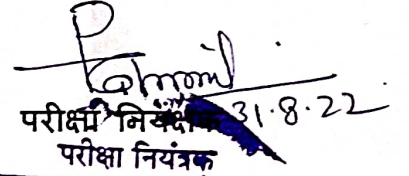 31.8.22
परीक्षा नियंत्रक
परीक्षा नियंत्रक